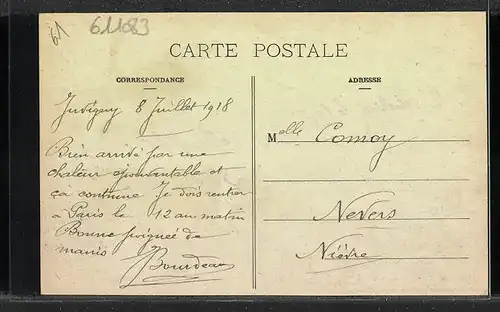 61
611083
CARTE POSTALE
CORRESPONDANCE
ADRESSE
Juvigny 8 Juillet 1918
Melle Comoy
Bien arrivé par une
chaleur épouvantable et
ça continue Je dois rentrer
à Paris le 12 au matin
Nevers
Bonne poignée de
mains
Nièvre
Bourdeau